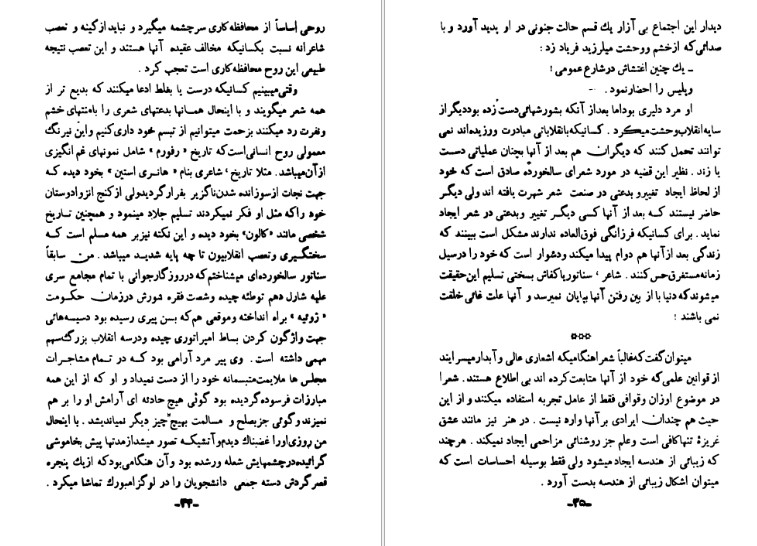 روحی اساساً از محافظه‌کاری سرچشمه میگیرد و نباید ازکینه و تعصب
شاعرانه نسبت بکسانیکه مخالف عقیده آنها هستند و این تعصب نتیجه
طبیعی این روح محافظه‌کاری است تعجب کرد .
وقتی میبینیم کسانیکه درست یا بغلط ادعا میکنند که بدیع تر از
همه شعر میگویند و با اینحال همانها بدعتهای شعری را بامنتهای خشم
ونفرت رد میکنند بزحمت میتوانیم از تبسم خود داری کنیم و این نیرنگ
معمولی روح انسانی است که تاریخ «رفورم» شامل نمونهای غم انگیزی
از آن میباشد. مثلا تاریخ، شاعری بنام «هانری استین» بخود دیده که
جهت نجات از سوزانده شدن ناگزیر بفرار گردید ولی از کنج انزوا دوستان
خود را که مثل او فکر نمیکردند تسلیم جلاد مینمود و همچنین تاریخ
شخصی مانند «کالون» بخود دیده و این نکته نیز بر همه مسلم است که
سختگیری وتعصب انقلابیون تا چه پایه شدید میباشد . من سابقاً
سناتور سالخورده‌ای میشناختم که در روزگار جوانی با تمام مجامع سری
علیه شارل دهم توطئه چیده وشصت فقره شورش در زمان حکومت
« ژوئیه » براه انداخته وموقعی هم که بسن پیری رسیده بود دسیسه‌هائی
جهت واژگون کردن بساط امپراتوری چیده ودرسه انقلاب بزرگ سهم
مهمی داشته است . وی پیر مرد آرامی بود که در تمام مشاجرات
مجلس ها ملایمت متبسمانه خود را از دست نمیداد و او که از این همه
مبارزات فرسوده گردیده بود گوئی هیچ حادثه ای آرامش او را بر هم
نمیزند وگوئی جز بصلح و مسالمت بهیچ چیز دیگر نمیاندیشد. با اینحال
من روزی اورا غضبناك دیدم وآتشیکه تصور میشد از مدتها پیش بخاموشی
گرائیده در چشمهایش شعله ور شده بود و آن هنگامی بود که از یك پنجره
قصر گردش دسته جمعی دانشجویان را در لوگزامبورك تماشا میکرد .
-۳۴-
دیدار این اجتماع بی آزار یك قسم حالت جنونی در او پدید آورد و با
صدائی که از خشم و وحشت میلرزید فریاد زد :
ـ یك چنین اغتشاش در شارع عمومی !
وپلیس را احضار نمود .
او مرد دلیری بود اما بعد از آنکه بشورشهائی دست زده بود دیگر از
سایه انقلاب وحشت میکرد . کسانیکه بانقلاباتی مبادرت ورزیده‌اند نمی
توانند تحمل کنند که دیگران هم بعد از آنها بچنان عملیاتی دست
یا زند . نظیر این قضیه در مورد شعرای سالخورده صادق است که خود
از لحاظ ایجاد تغییر و بدعتی در صنعت شعر شهرت یافته اند ولی دیگر
حاضر نیستند که بعد از آنها کسی دیگر تغییر وبدعتی در شعر ایجاد
نماید . برای کسانیکه فرزانگی فوق‌العاده ندارند مشکل است ببینند که
زندگی بعد از آنها هم دوام پیدا میکند ودشوار است که خود را در سیل
زمانه مستغرق حس کنند . شاعر ، سناتور یا کفاش بسختی تسلیم این حقیقت
میشوند که دنیا با از بین رفتن آنها بپایان نمیرسد و آنها علت غائی خلقت
نمی باشند ؛
***
میتوان گفت که غالباً شعرا هنگامیکه اشعاری عالی و آبدار میسرایند
از قوانین علمی که خود از آنها متابعت کرده اند بی اطلاع هستند. شعرا
در موضوع اوزان وقوافی فقط از عامل تجربه استفاده میکنند و از این
حیث هم چندان ایرادی بر آنها وارد نیست . در هنر نیز مانند عشق
غریزهٔ تنها کافی است وعلم جز روشنائی مزاحمی ایجاد نمیکند . هر چند
که زیبائی از هندسه ایجاد میشود ولی فقط بوسیله احساسات است که
میتوان اشکال زیبائی از هندسه بدست آورد .
-۳۵-